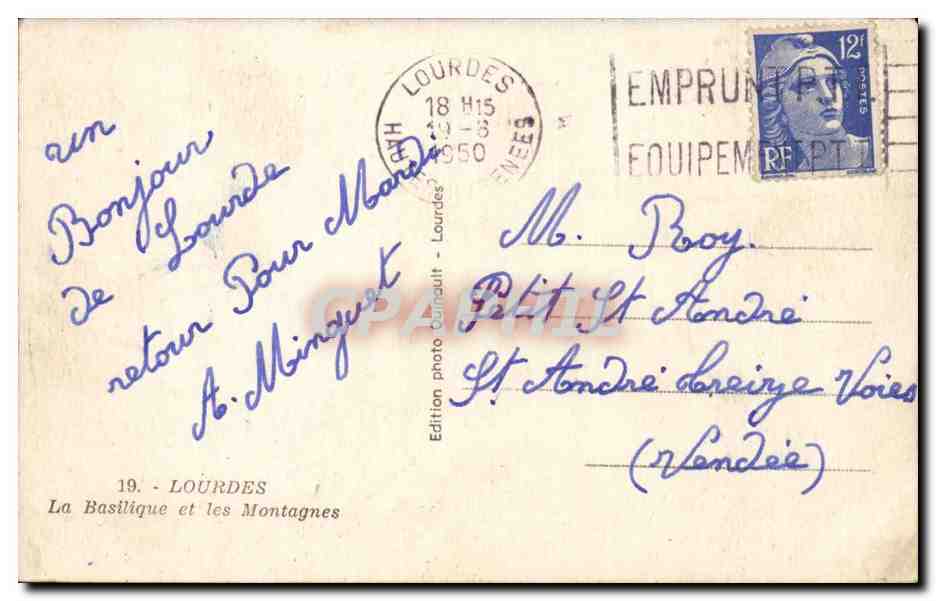 un
Bonjour
de Lourde
retour Pour Mardi
A. Minguet
19. - LOURDES
La Basilique et les Montagnes
Edition photo Ouinault - Lourdes
LOURDES
18 H15
19 -6
1950
12f
POSTES
RF
EMPRUNT PTT
EQUIPEMENT PTT
M. Roy.
Petit St André
St André treize Voies
(Vendée)
CPAPHIL